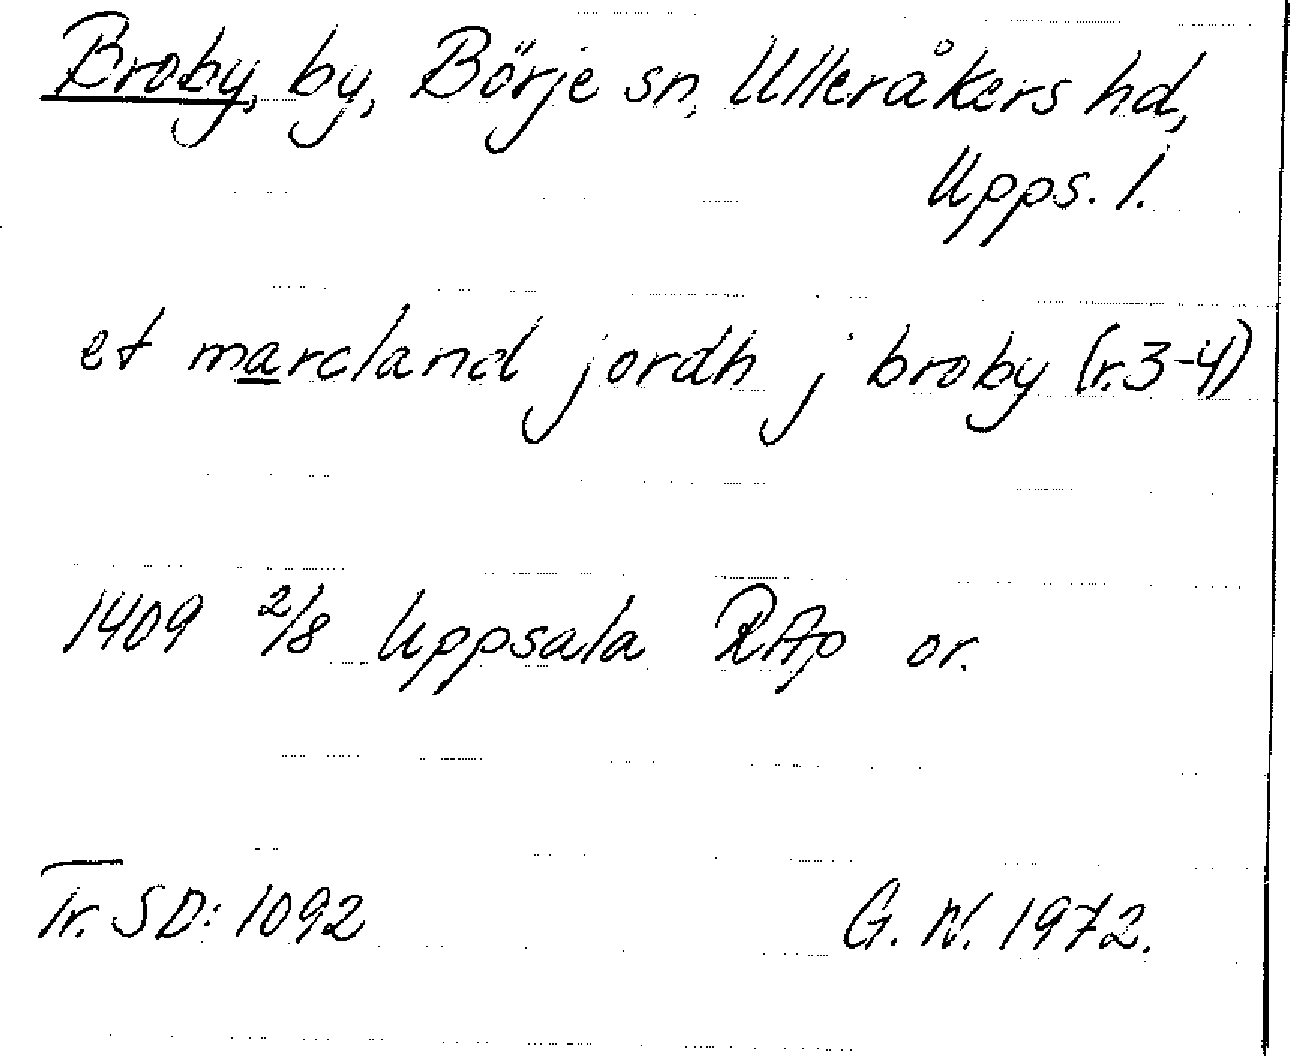 Broby, by, Börje sn, Ulleråkers hd,
Upps. l.
et marcland jordh j broby (r.3-4)
1409 2/8 Uppsala RAp or.
Tr. SD: 1092
G. N. 1972.